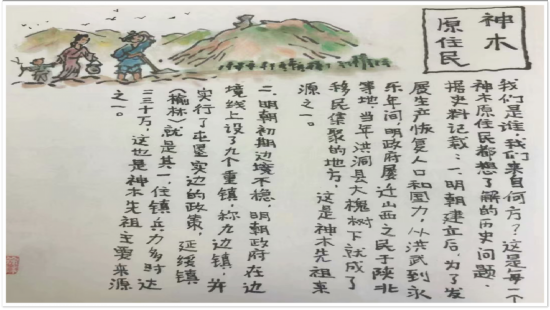 神木
原住民
我们是谁,我们来自何方?这是每一个
神木原住民都想了解的历史问题.
据史料记载:一.明朝建立后,为了发
展生产恢复人口和国力,以洪武到永
乐年间,明政府屡迁山西之民于陕北
等地.当年洪洞县大槐树下就成了
移民集聚的地方,这是神木先祖来
源之一。
二.明朝初期边境不稳,明朝政府在边
境线上设了九个重镇,称九边镇,并
实行了屯堡实边的政策,延绥镇
(榆林)就是其一,住镇兵力多时达
二三十万,这也是神木先祖主要来源
之一。